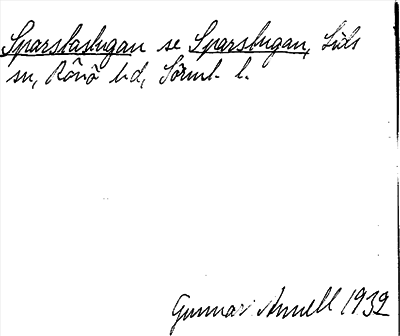 Sparstastugan se Sparstugan, Lids
sn, Rönö hd, Sörml. l.
Gunnar Annell 1939